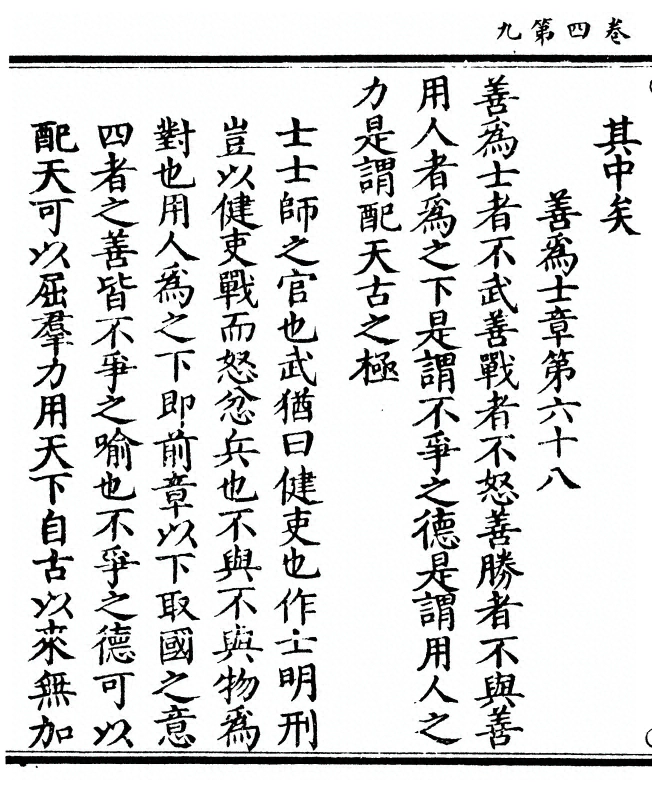 卷四第九
其中矣
善爲士章第六十八
善爲士者不武善戰者不怒善勝者不與善
用人者爲之下是謂不爭之德是謂用人之
力是謂配天古之極
士士師之官也武猶曰健吏也作士明刑
豈以健吏戰而怒忿兵也不與不與物爲
對也用人爲之下即前章以下取國之意
四者之善皆不爭之喻也不爭之德可以
配天可以屈羣力用天下自古以來無加